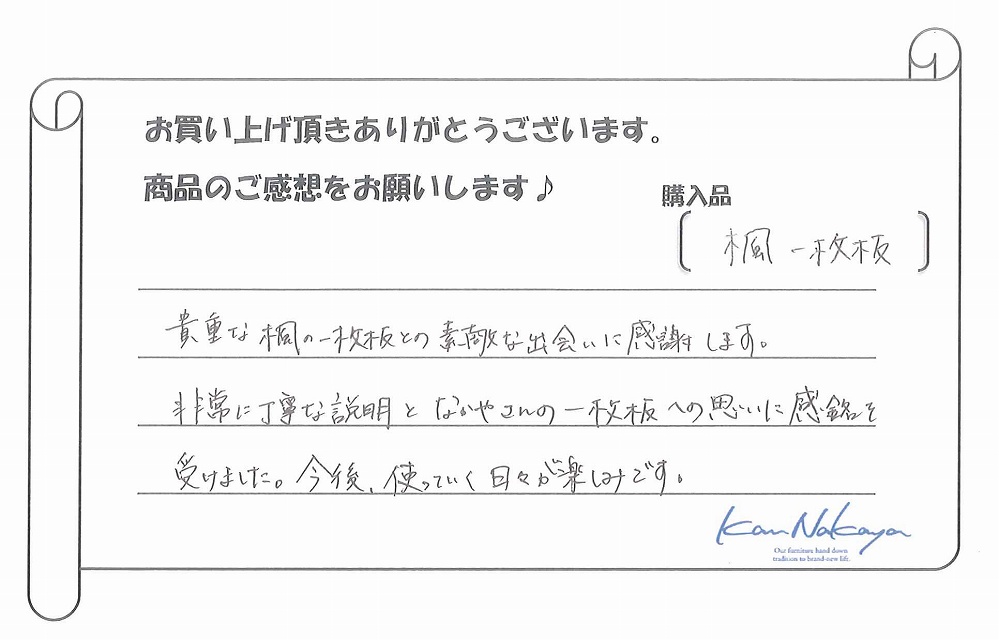 お買い上げ頂きありがとうございます。
商品のご感想をお願いします♪
購入品
楓 一枚板
貴重な楓の一枚板との素敵な出会いに感謝します。
非常に丁寧な説明となかやさんの一枚板への思いに感銘を
受けました。今後、使っていく日々が楽しみです。
Kan Nakaya
Our furniture hand down
tradition to brand-new life.